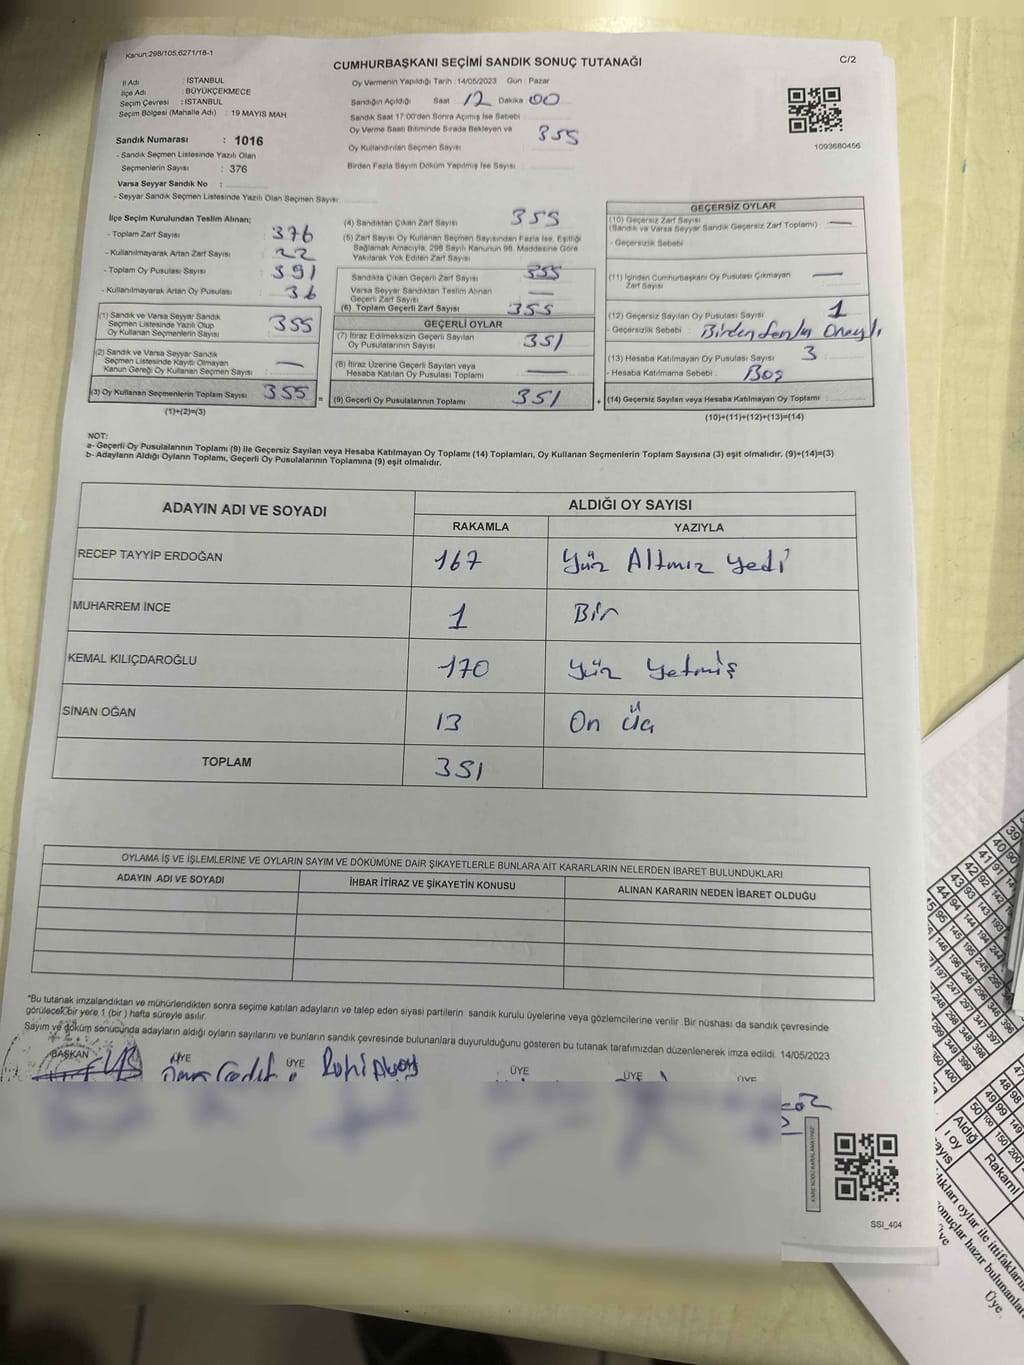 Kanun:298/105,6271/18-1
CUMHURBAŞKANI SEÇİMİ SANDIK SONUÇ TUTANAĞI
C/2
İl Adı : İSTANBUL
İlçe Adı : BÜYÜKÇEKMECE
Seçim Çevresi : İSTANBUL
Seçim Bölgesi (Mahalle Adı) : 19 MAYIS MAH.
Oy Vermenin Yapıldığı Tarih : 14/05/2023 Gün : Pazar
Sandığın Açıldığı Saat 12 Dakika 00
Sandık Saat 17:00'den Sonra Açılmış İse Sebebi
Oy Verme Saati Bitiminde Sırada Bekleyen ve
Oy Kullandırılan Seçmen Sayısı 355
Birden Fazla Sayım Döküm Yapılmış İse Sayısı :
1093680456
Sandık Numarası : 1016
- Sandık Seçmen Listesinde Yazılı Olan
Seçmenlerin Sayısı : 376
Varsa Seyyar Sandık No :
- Seyyar Sandık Seçmen Listesinde Yazılı Olan Seçmen Sayısı:
İlçe Seçim Kurulundan Teslim Alınan;
- Toplam Zarf Sayısı 376
- Kullanılmayarak Artan Zarf Sayısı 22
- Toplam Oy Pusulası Sayısı 391
- Kullanılmayarak Artan Oy Pusulası 36
(1) Sandık ve Varsa Seyyar Sandık
Seçmen Listesinde Yazılı Olup
Oy Kullanan Seçmenlerin Sayısı 355
(2) Sandık ve Varsa Seyyar Sandık
Seçmen Listesinde Kayıtlı Olmayan
Kanun Gereği Oy Kullanan Seçmen Sayısı : —
(3) Oy Kullanan Seçmenlerin Toplam Sayısı 355 =
(1)+(2)=(3)
(4) Sandıktan Çıkan Zarf Sayısı 355
(5) Zarf Sayısı Oy Kullanan Seçmen Sayısından Fazla İse, Eşitliği
Sağlamak Amacıyla, 298 Sayılı Kanunun 98. Maddesine Göre
Yakılarak Yok Edilen Zarf Sayısı
Sandıkta Çıkan Geçerli Zarf Sayısı 355
Varsa Seyyar Sandıktan Teslim Alınan
Geçerli Zarf Sayısı —
(6) Toplam Geçerli Zarf Sayısı 355
GEÇERLİ OYLAR
(7) İtiraz Edilmeksizin Geçerli Sayılan
Oy Pusulalarının Sayısı 351
(8) İtiraz Üzerine Geçerli Sayılan veya
Hesaba Katılan Oy Pusulası Toplamı —
(9) Geçerli Oy Pusulalarının Toplamı 351 +
GEÇERSİZ OYLAR
(10) Geçersiz Zarf Sayısı
(Sandık ve Varsa Seyyar Sandık Geçersiz Zarf Toplamı) —
- Geçersizlik Sebebi
(11) İçinden Cumhurbaşkanı Oy Pusulası Çıkmayan
Zarf Sayısı —
(12) Geçersiz Sayılan Oy Pusulası Sayısı 1
- Geçersizlik Sebebi : Birden fazla Onaylı
(13) Hesaba Katılmayan Oy Pusulası Sayısı 3
- Hesaba Katılmama Sebebi : Boş
(14) Geçersiz Sayılan veya Hesaba Katılmayan Oy Toplamı
(10)+(11)+(12)+(13)=(14)
NOT:
a- Geçerli Oy Pusulalarının Toplamı (9) ile Geçersiz Sayılan veya Hesaba Katılmayan Oy Toplamı (14) Toplamları, Oy Kullanan Seçmenlerin Toplam Sayısına (3) eşit olmalıdır. (9)+(14)=(3)
b- Adayların Aldığı Oyların Toplamı, Geçerli Oy Pusulalarının Toplamına (9) eşit olmalıdır.
ADAYIN ADI VE SOYADI ALDIĞI OY SAYISI
RAKAMLA YAZIYLA
RECEP TAYYİP ERDOĞAN 167 Yüz Altmız Yedi
MUHARREM İNCE 1 Bir
KEMAL KILIÇDAROĞLU 170 Yüz Yetmiş
SİNAN OĞAN 13 On Üç
TOPLAM 351
OYLAMA İŞ VE İŞLEMLERİNE VE OYLARIN SAYIM VE DÖKÜMÜNE DAİR ŞİKAYETLERLE BUNLARA AİT KARARLARIN NELERDEN İBARET BULUNDUKLARI
ADAYIN ADI VE SOYADI İHBAR İTİRAZ VE ŞİKAYETİN KONUSU ALINAN KARARIN NEDEN İBARET OLDUĞU
*Bu tutanak imzalandıktan ve mühürlendikten sonra seçime katılan adayların ve talep eden siyasi partilerin sandık kurulu üyelerine veya gözlemcilerine verilir .Bir nüshası da sandık çevresinde
görülecek bir yere 1 (bir ) hafta süreyle asılır.
Sayım ve döküm sonucunda adayların aldığı oyların sayılarını ve bunların sandık çevresinde bulunanlara duyurulduğunu gösteren bu tutanak tarafımızdan düzenlenerek imza edildi. 14/05/2023
BAŞKAN ÜYE ÜYE ÜYE ÜYE ÜYE
SSI_404
Aldığı
Rakaml
Üye